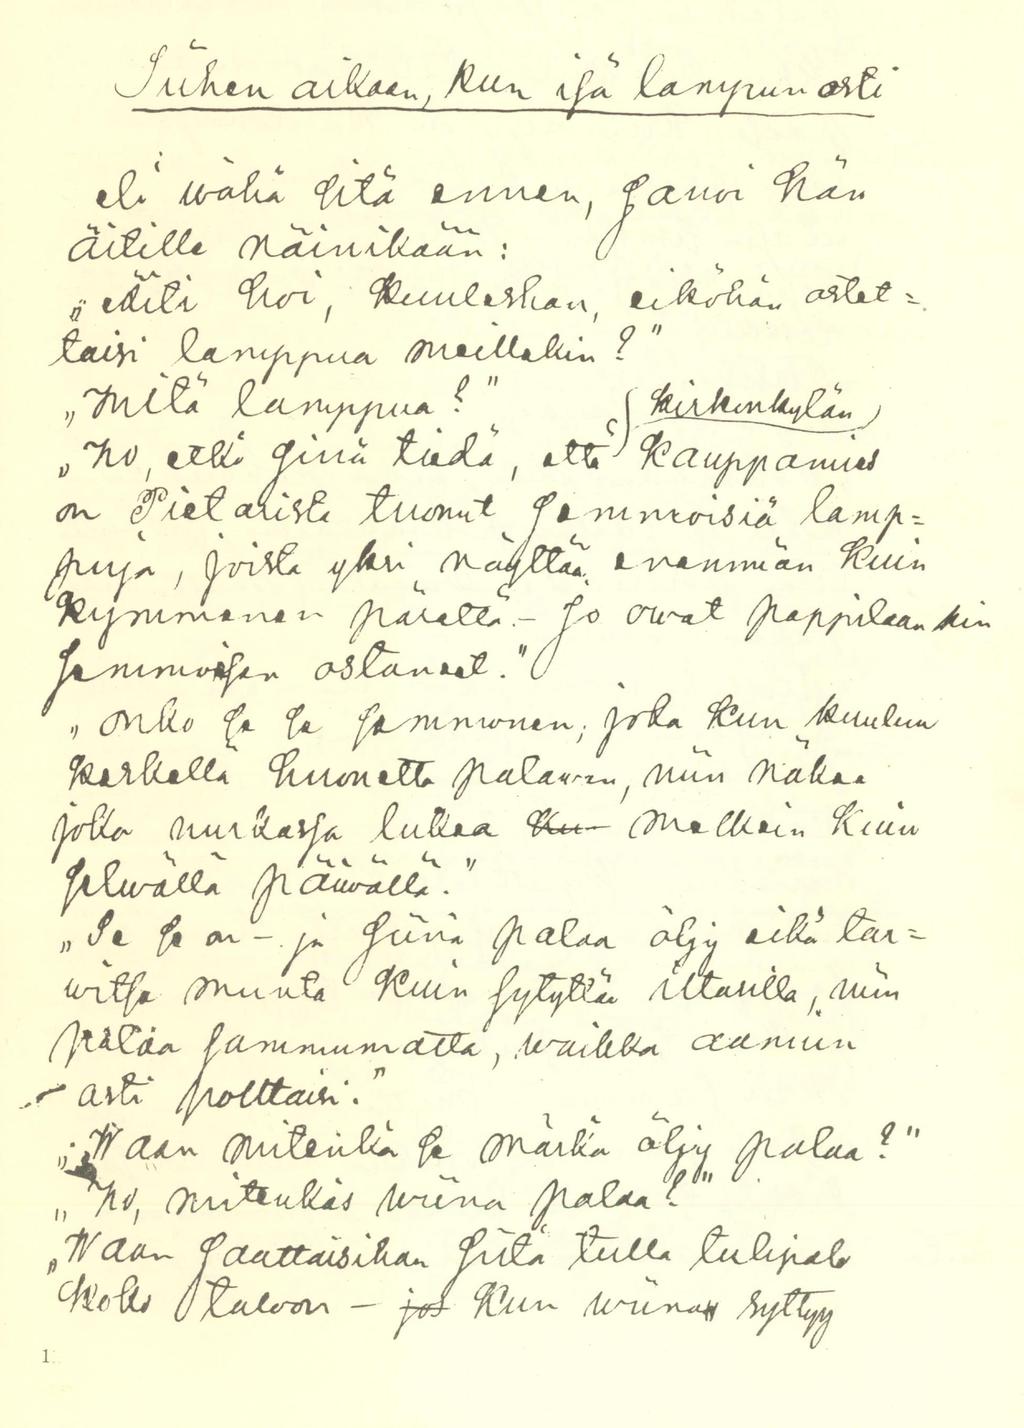 Siihen aikaan, kun isä lampun osti
eli wähä sitä ennen, sanoi hän
äitille näinikään:
„Äiti hoi, kuuleshan, eiköhän ostet=
taisi lamppua meillekin?"
„Mitä lamppua?"
kirkonkylän
„No, etkö sinä tiedä, että kauppamies
on Pietarista tuonut semmoisiä lamp=
puja, joista yksi näyttää enemmän kuin
kymmenen pärettä. – Jo owat pappilaankin
semmoisen ostaneet."
„Onko se se semmonen, joka kun kuuluu
keskellä huonetta palawan, niin näkee
joka nurkassa lukea ku- melkein kuin
selwällä päiwällä."
„Se se on – ja siinä palaa öljy eikä tar=
witse muuta kuin sytyttää iltasilla, niin
palaa sammumatta, waikka aamuun
asti polttaisi."
„Waan mitenkä se märkä öljy palaa?"
„No, mitenkäs wiina palaa?"
„Waan saattaisihan siitä tulla tulipalo
koko taloon – jos kun wiina syttyy
1.